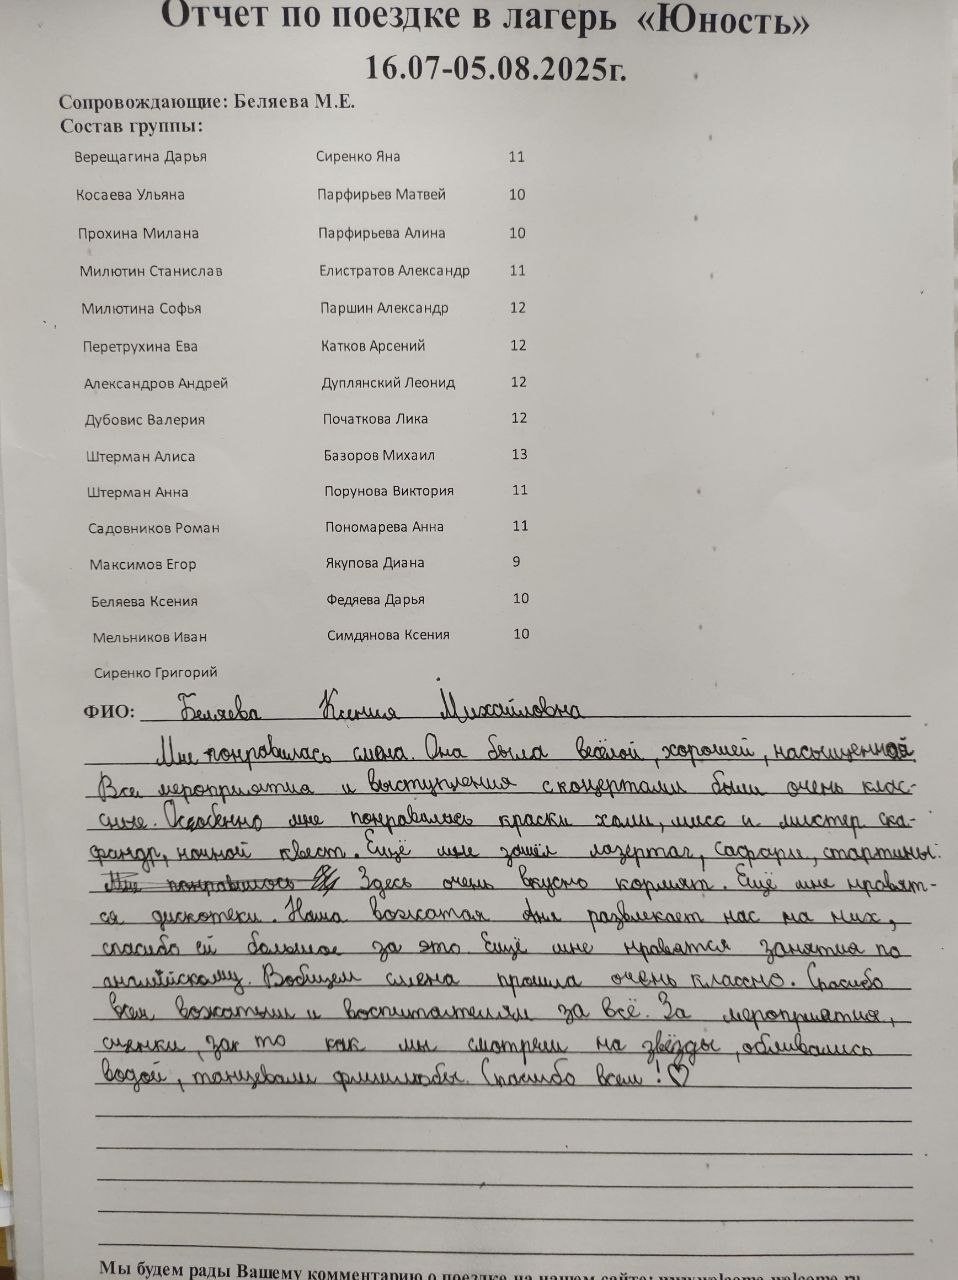 Отчет по поездке в лагерь «Юность»
16.07-05.08.2025г.
Сопровождающие: Беляева М.Е.
Состав группы:
Верещагина Дарья Сиренко Яна 11
Косаева Ульяна Парфирьев Матвей 10
Прохина Милана Парфирьева Алина 10
Милютин Станислав Елистратов Александр 11
Милютина Софья Паршин Александр 12
Перетрухина Ева Катков Арсений 12
Александров Андрей Дуплянский Леонид 12
Дубовис Валерия Початкова Лика 12
Штерман Алиса Базоров Михаил 13
Штерман Анна Порунова Виктория 11
Садовников Роман Пономарева Анна 11
Максимов Егор Якупова Диана 9
Беляева Ксения Федяева Дарья 10
Мельников Иван Симдянова Ксения 10
Сиренко Григорий
ФИО: Беляева Ксения Михайловна
Мне понравилась смена. Она была весёлой, хорошей, насыщенной.
Все мероприятия и выступления с концертами были очень клас-
сные. Особенно мне понравилось краски холи, мисс и мистер ска-
фандр, ночной квест. Ещё мне зашёл лазертаг, сафари, стартины.
Мне понравилось Здесь очень вкусно кормят. Ещё мне нравят-
ся дискотеки. Наша вожатая Аня развлекает нас на них,
спасибо ей большое за это. Ещё мне нравятся занятия по
английскому. Вообщем смена прошла очень классно. Спасибо
всем вожатым и воспитателям за всё. За мероприятия,
сценки, зак то как мы смотрели на звёзды, обливались
водой, танцевали флешмобы. Спасибо всем! ♡
Мы будем рады Вашему комментарию о поездке на нашем сайте: www.welcome-welcome.ru